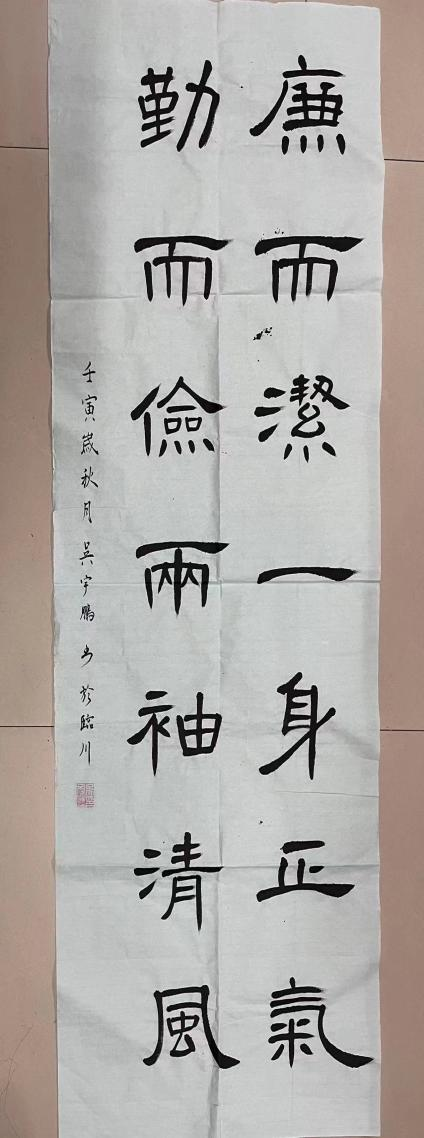 廉而潔一身正氣
勤而儉兩袖清風
壬寅歲秋月吳宇鵬书於臨川